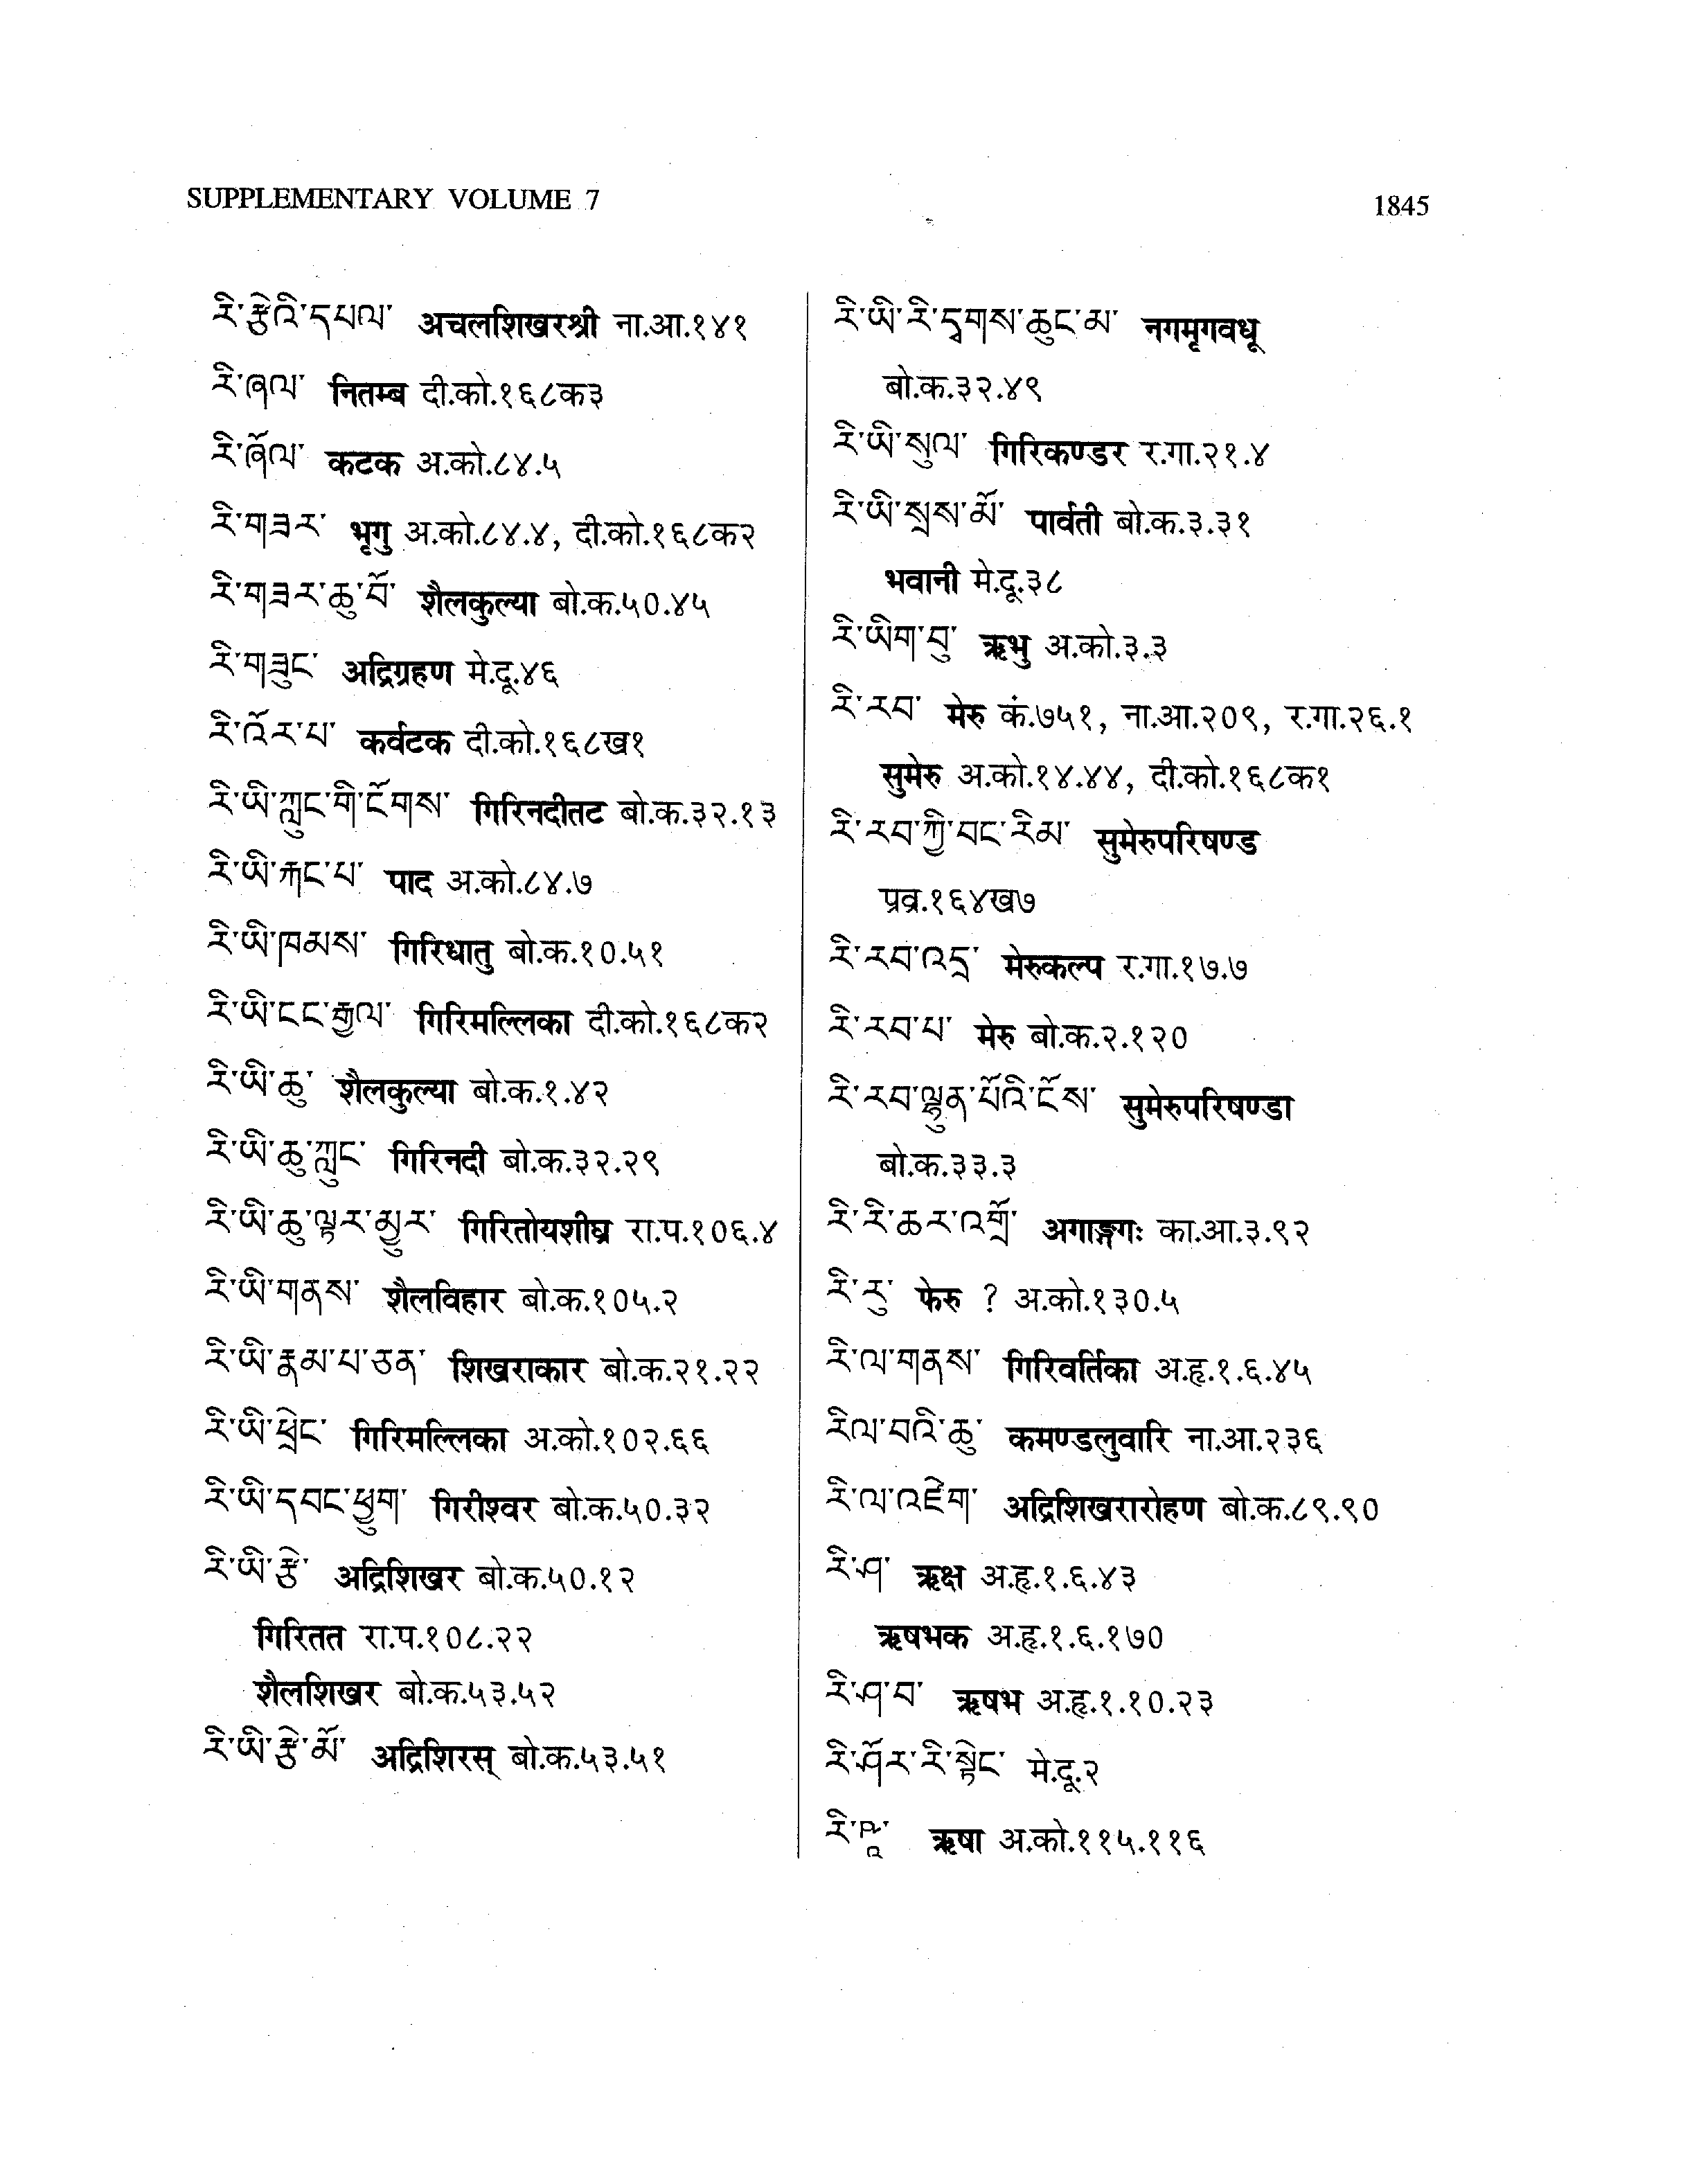 SUPPLEMENTARY VOLUME 7
1845
རི་རྩེའི་དཔལ་ अचलशिखरश्री ना.आ.१४१
རི་ཞལ་ नितम्ब दी.को.१६८क३
རི་ཞོལ་ कटक अ.को.८४.५
རི་གཟར་ भृगु अ.को.८४.४, दी.को.१६८क२
རི་གཟར་ཆུ་བོ་ शैलकुल्या बो.क.५०.४५
རི་གཟུང་ अद्रिग्रहण मे.दू.४६
རི་འོར་པ་ कर्वटक दी.को.१६८ख१
རི་ཡི་ཀླུང་གི་ངོགས་ गिरिनदीतट बो.क.३२.१३
རི་ཡི་རྐང་པ་ पाद अ.को.८४.७
རི་ཡི་ཁམས་ गिरिधातु बो.क.१०.५१
རི་ཡི་ངང་རྒྱལ་ गिरिमल्लिका दी.को.१६८क२
རི་ཡི་ཆུ་ शैलकुल्या बो.क.१.४२
རི་ཡི་ཆུ་ཀླུང་ गिरिनदी बो.क.३२.२९
རི་ཡི་ཆུ་ལྟར་མྱུར་ गिरितोयशीघ्र रा.प.१०६.४
རི་ཡི་གནས་ शैलविहार बो.क.१०५.२
རི་ཡི་རྣམ་པ་ཅན་ शिखराकार बो.क.२१.२२
རི་ཡི་ཕྲེང་ गिरिमल्लिका अ.को.१०२.६६
རི་ཡི་དབང་ཕྱུག་ गिरीश्वर बो.क.५०.३२
རི་ཡི་རྩེ་ अद्रिशिखर बो.क.५०.१२
गिरितत रा.प.१०८.२२
शैलशिखर बो.क.५३.५२
རི་ཡི་རྩེ་མོ་ अद्रिशिरस् बो.क.५३.५१
རི་ཡི་རི་དྭགས་ཆུང་མ་ नगमृगवधू
बो.क.३२.४९
རི་ཡི་སུལ་ गिरिकण्डर र.गा.२१.४
རི་ཡི་སྲས་མོ་ पार्वती बो.क.३.३१
भवानी मे.दू.३८
རི་ཡིག་བུ་ ऋभु अ.को.३.३
རི་རབ་ मेरु कं.७५१, ना.आ.२०९, र.गा.२६.१
सुमेरु अ.को.१४.४४, दी.को.१६८क१
རི་རབ་ཀྱི་བང་རིམ་ सुमेरुपरिषण्ड
प्रव्र.१६४ख७
རི་རབ་འདྲ་ मेरुकल्प र.गा.१७.७
རི་རབ་པ་ मेरु बो.क.२.१२०
རི་རབ་ལྷུན་པོའི་ངོས་ सुमेरुपरिषण्डा
बो.क.३३.३
རི་རི་ཆར་འགྲོ་ अगाङ्गगः का.आ.३.९२
རི་རུ་ फेरु ? अ.को.१३०.५
རི་ལ་གནས་ गिरिवर्तिका अ.हृ.१.६.४५
རིལ་བའི་ཆུ་ कमण्डलुवारि ना.आ.२३६
རི་ལ་འཛེག་ अद्रिशिखरारोहण बो.क.८९.९०
རི་ཤ་ ऋक्ष अ.हृ.१.६.४३
ऋषभक अ.हृ.१.६.१७०
རི་ཤ་བ་ ऋषभ अ.हृ.१.१०.२३
རི་ཤོར་རི་སྟེང་ मे.दू.२
རི་ཥཱ་ ऋषा अ.को.११५.११६